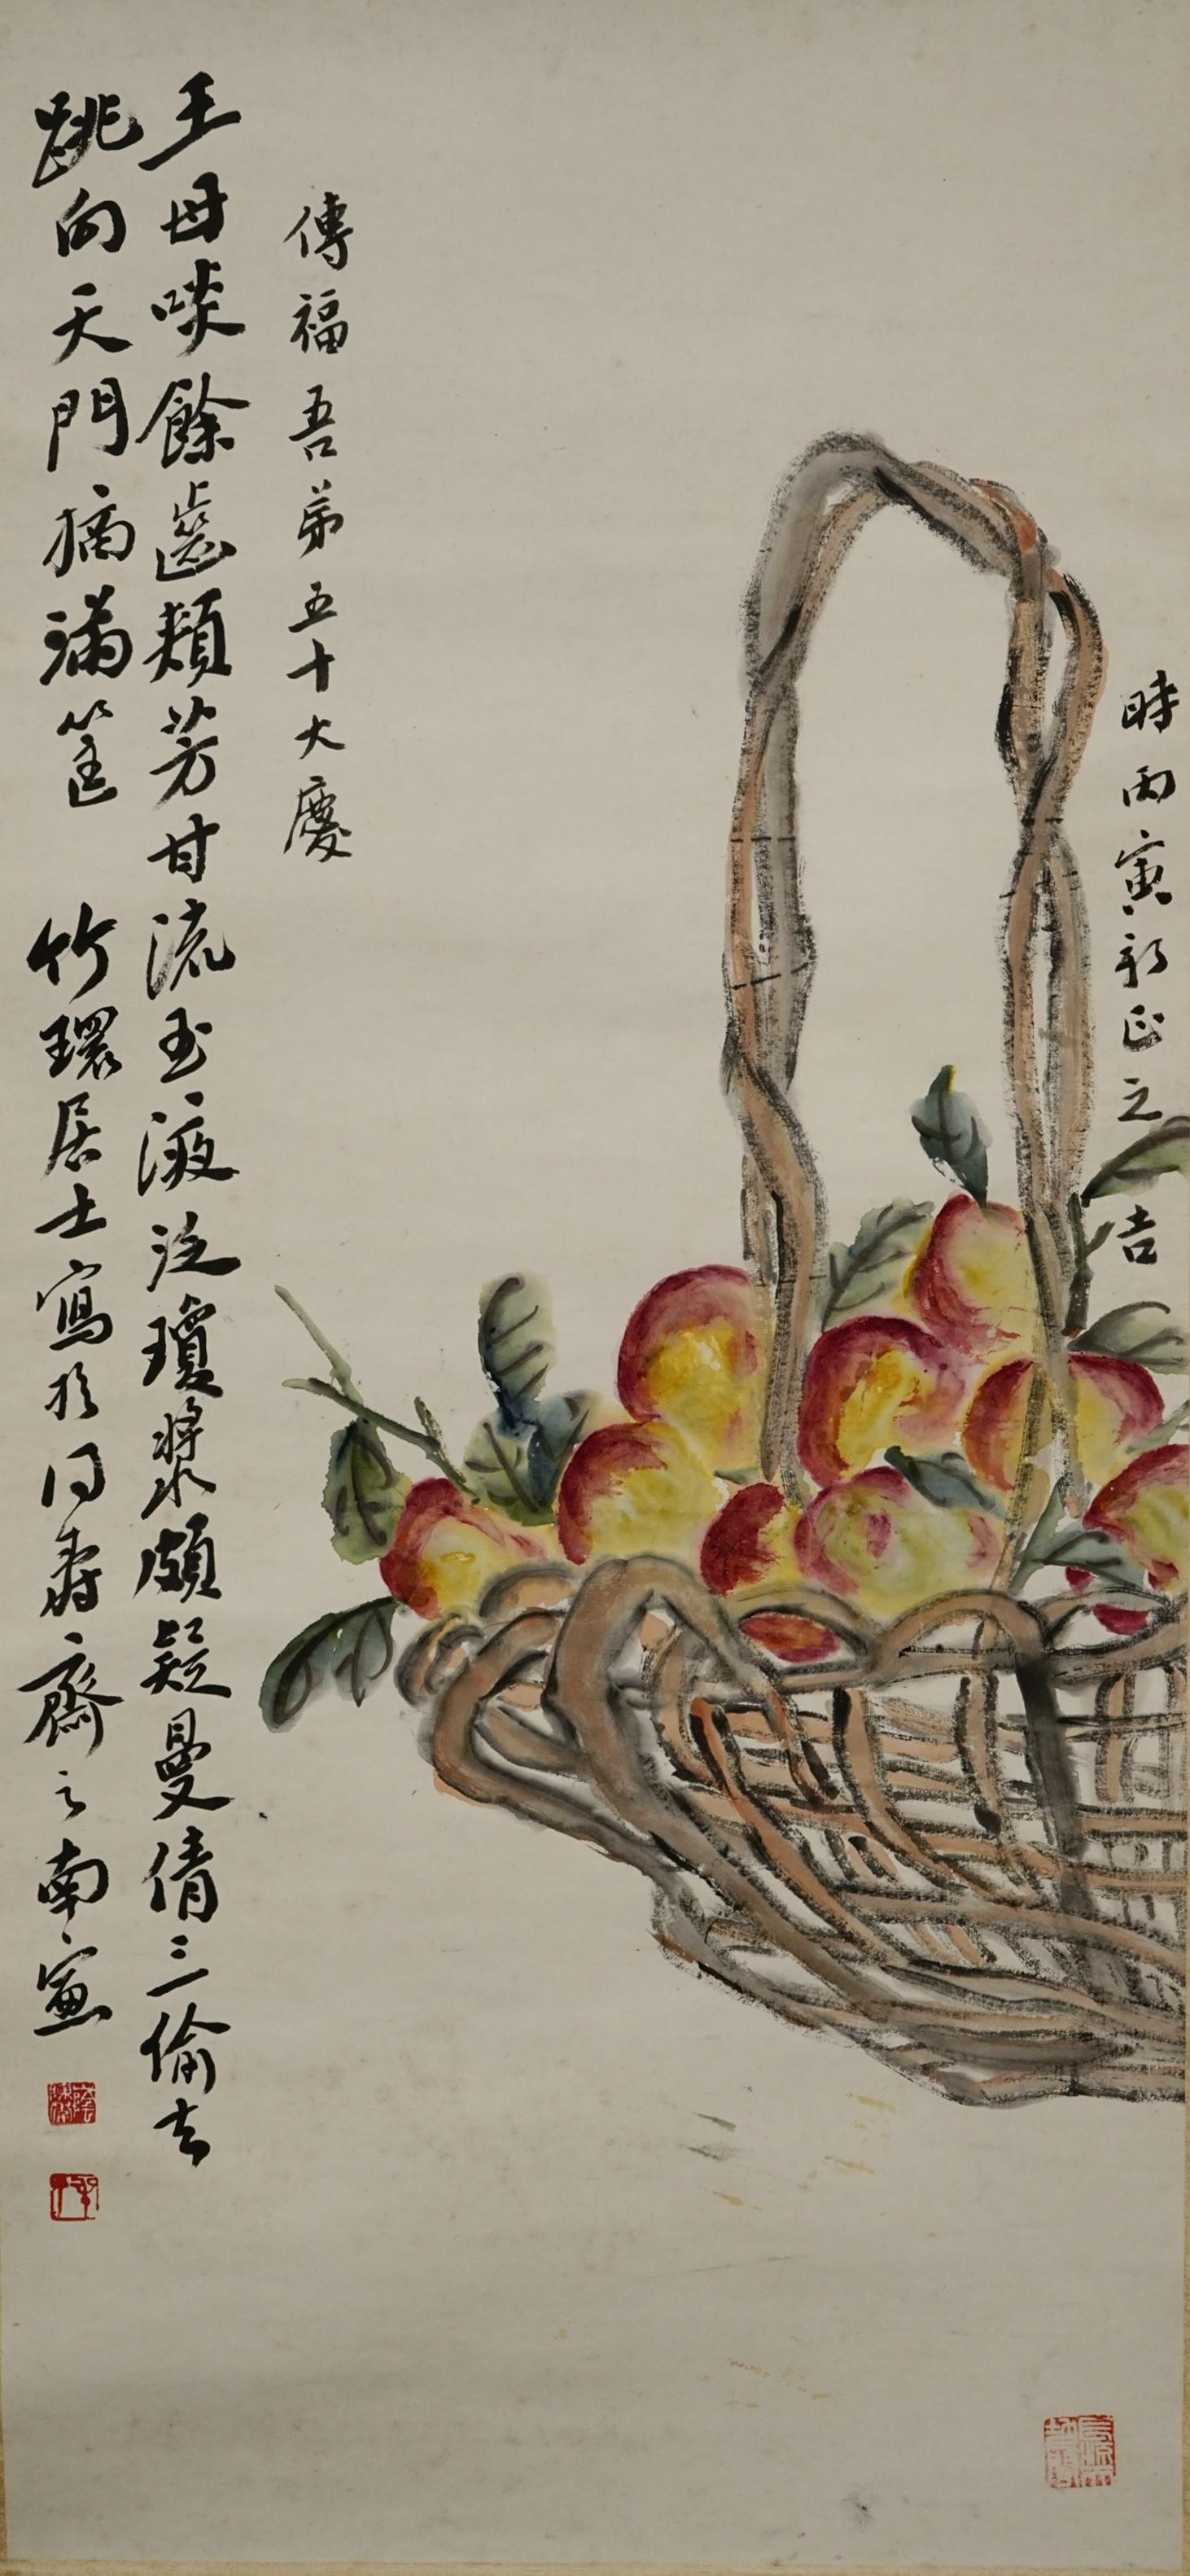 時丙寅新正之吉
傳福吾弟五十大慶
王母啖餘齒頰芳甘流玉液泛瓊漿頗疑曼倩三偷去
跳向天門摘滿筐 竹環居士寫於同壽齋之南窗